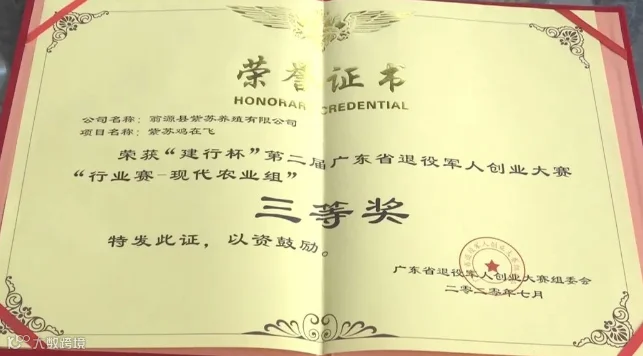 荣誉证书
HONORAR CREDENTIAL
公司名称：翁源县紫苏养殖有限公司
项目名称：紫苏鸡在飞
荣获“建行杯”第二届广东省退役军人创业大赛
“行业赛-现代农业组”
三等奖
特发此证，以资鼓励。
广东省退役军人创业大赛组委会
二零二零年七月
大数跨境